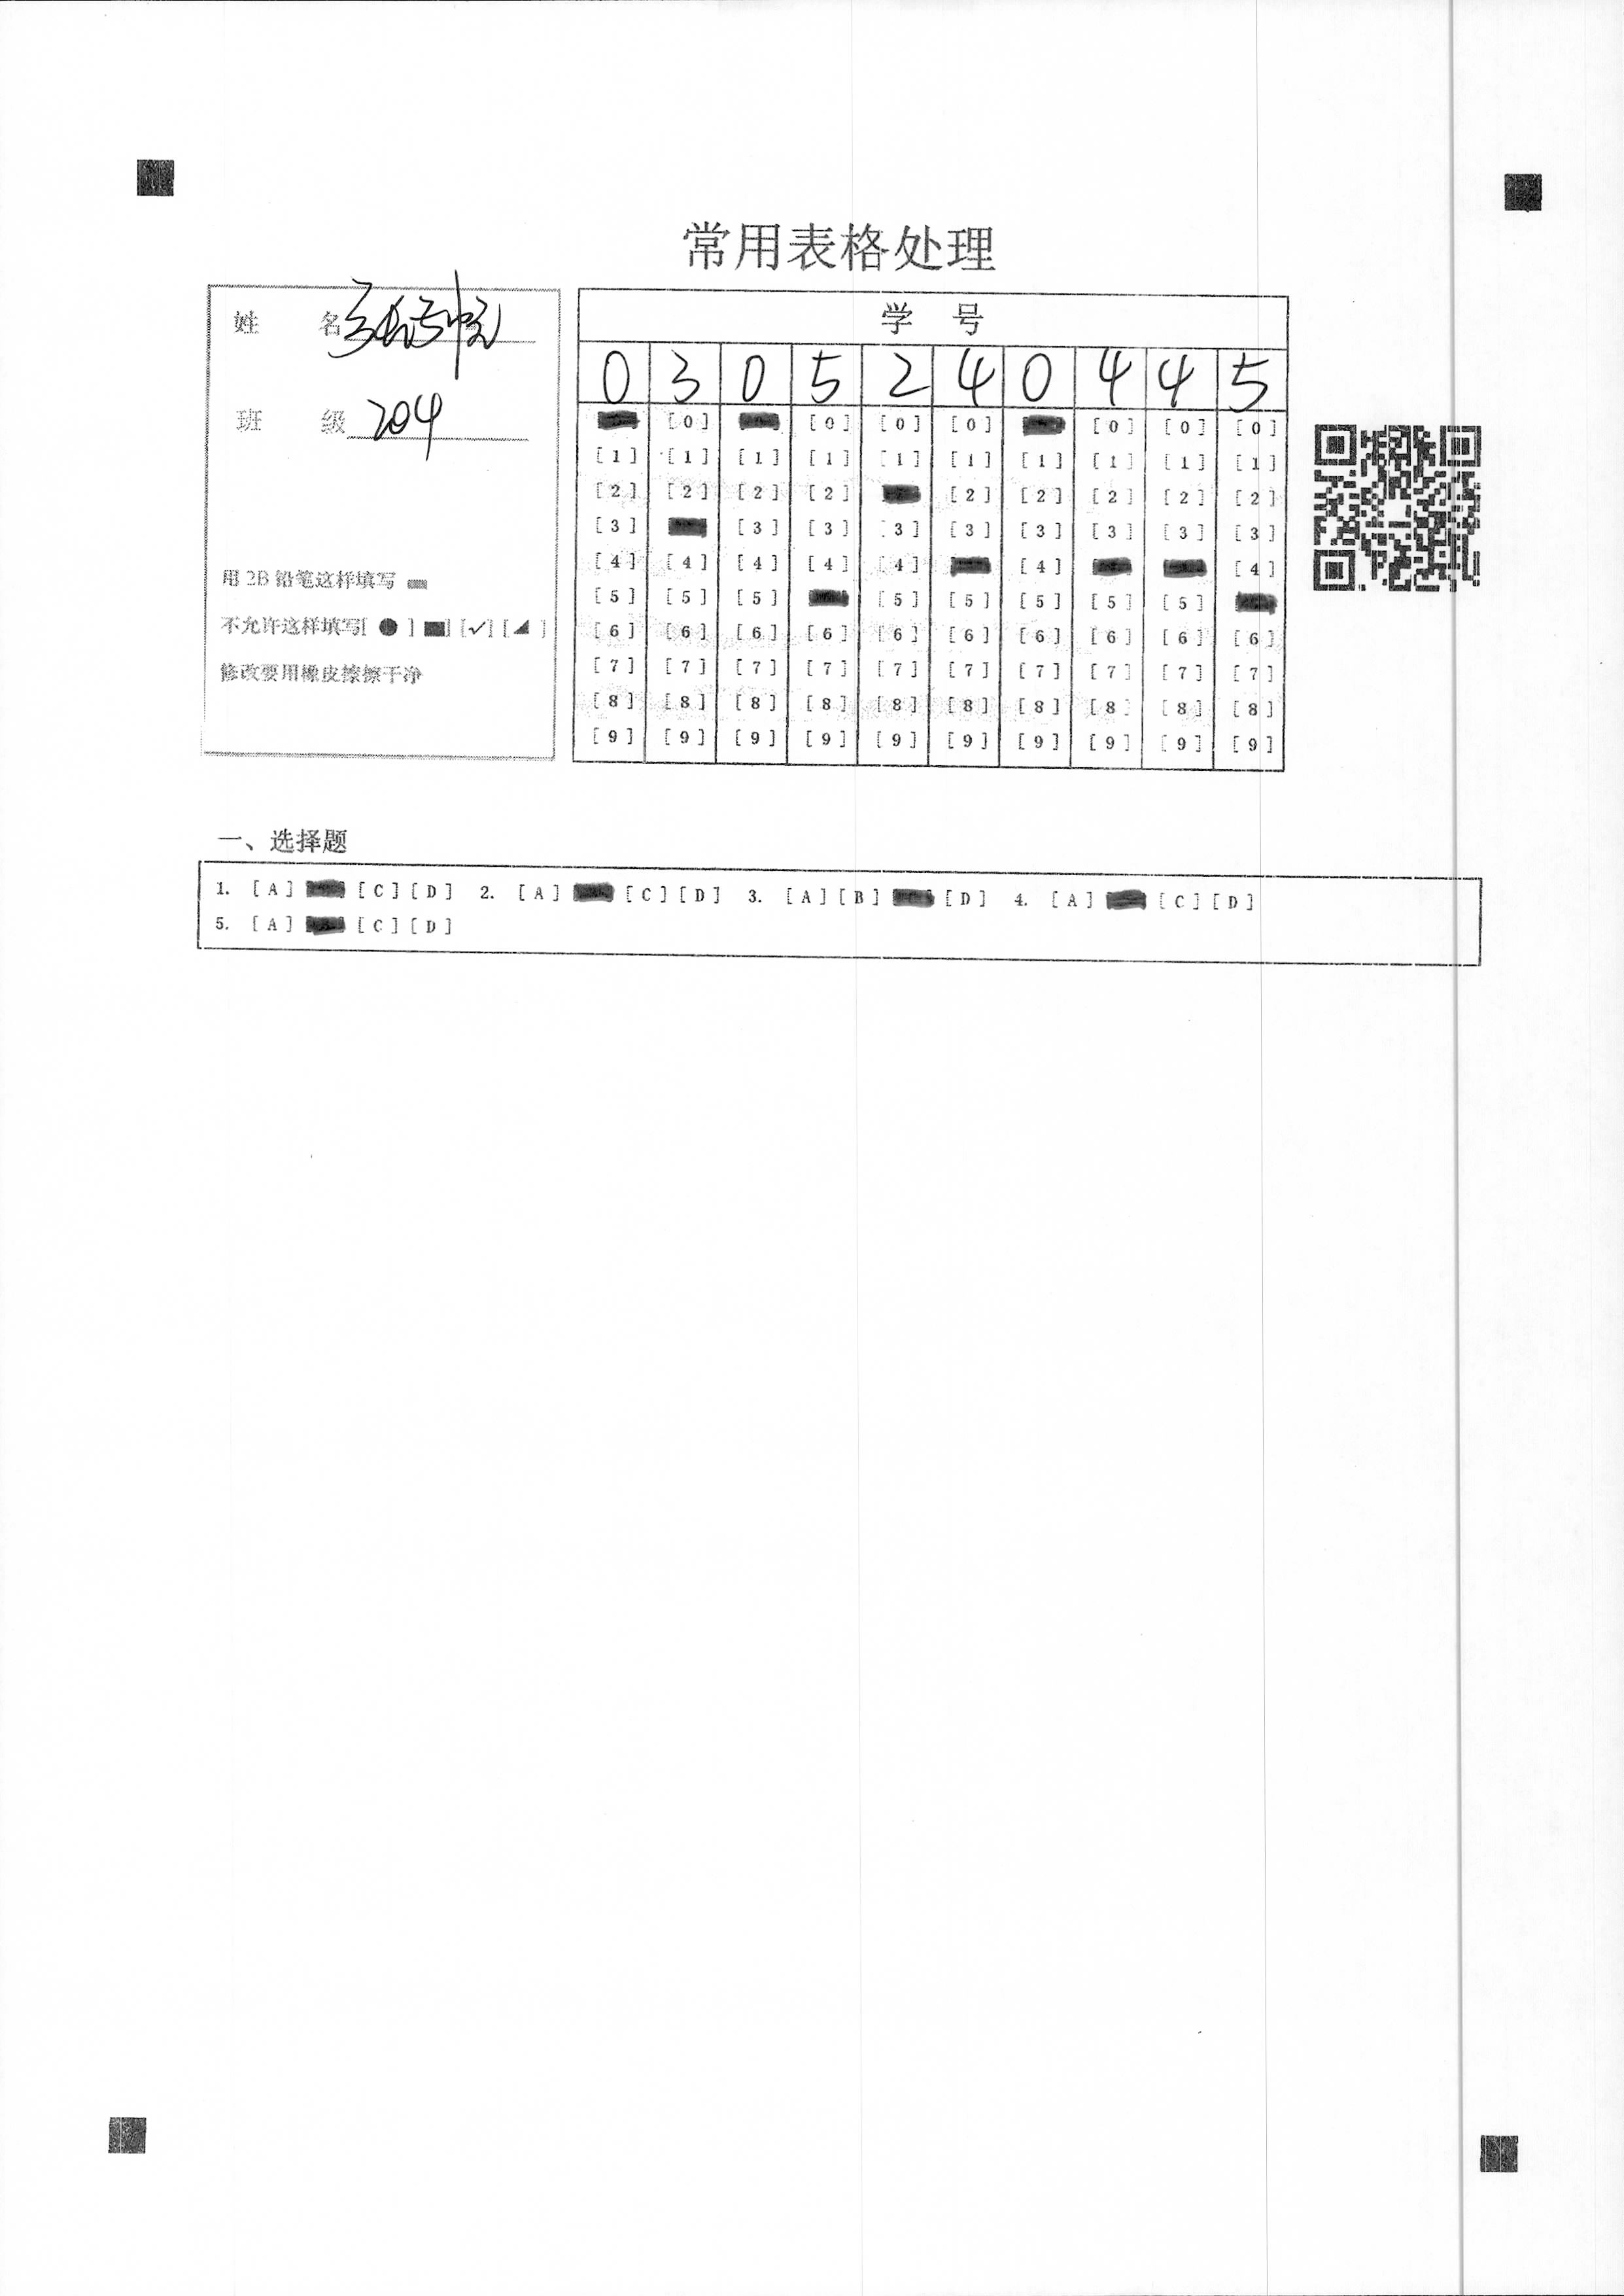 常用表格处理
姓 名
班 级 204
用 2B 铅笔这样填写
不允许这样填写[ ● ] ■] [✓] [◢ ]
修改要用橡皮擦擦干净
学 号
0 3 0 5 2 4 0 4 4 5
[0] [0] [0] [0] [0] [0] [0]
[1] [1] [1] [1] [1] [1] [1] [1] [1] [1]
[2] [2] [2] [2] [2] [2] [2] [2] [2]
[3] [3] [3] [3] [3] [3] [3] [3] [3]
[4] [4] [4] [4] [4] [4] [4]
[5] [5] [5] [5] [5] [5] [5] [5]
[6] [6] [6] [6] [6] [6] [6] [6] [6] [6]
[7] [7] [7] [7] [7] [7] [7] [7] [7] [7]
[8] [8] [8] [8] [8] [8] [8] [8] [8] [8]
[9] [9] [9] [9] [9] [9] [9] [9] [9] [9]
一、选择题
1. [A] [C] [D] 2. [A] [C] [D] 3. [A] [B] [D] 4. [A] [C] [D]
5. [A] [C] [D]